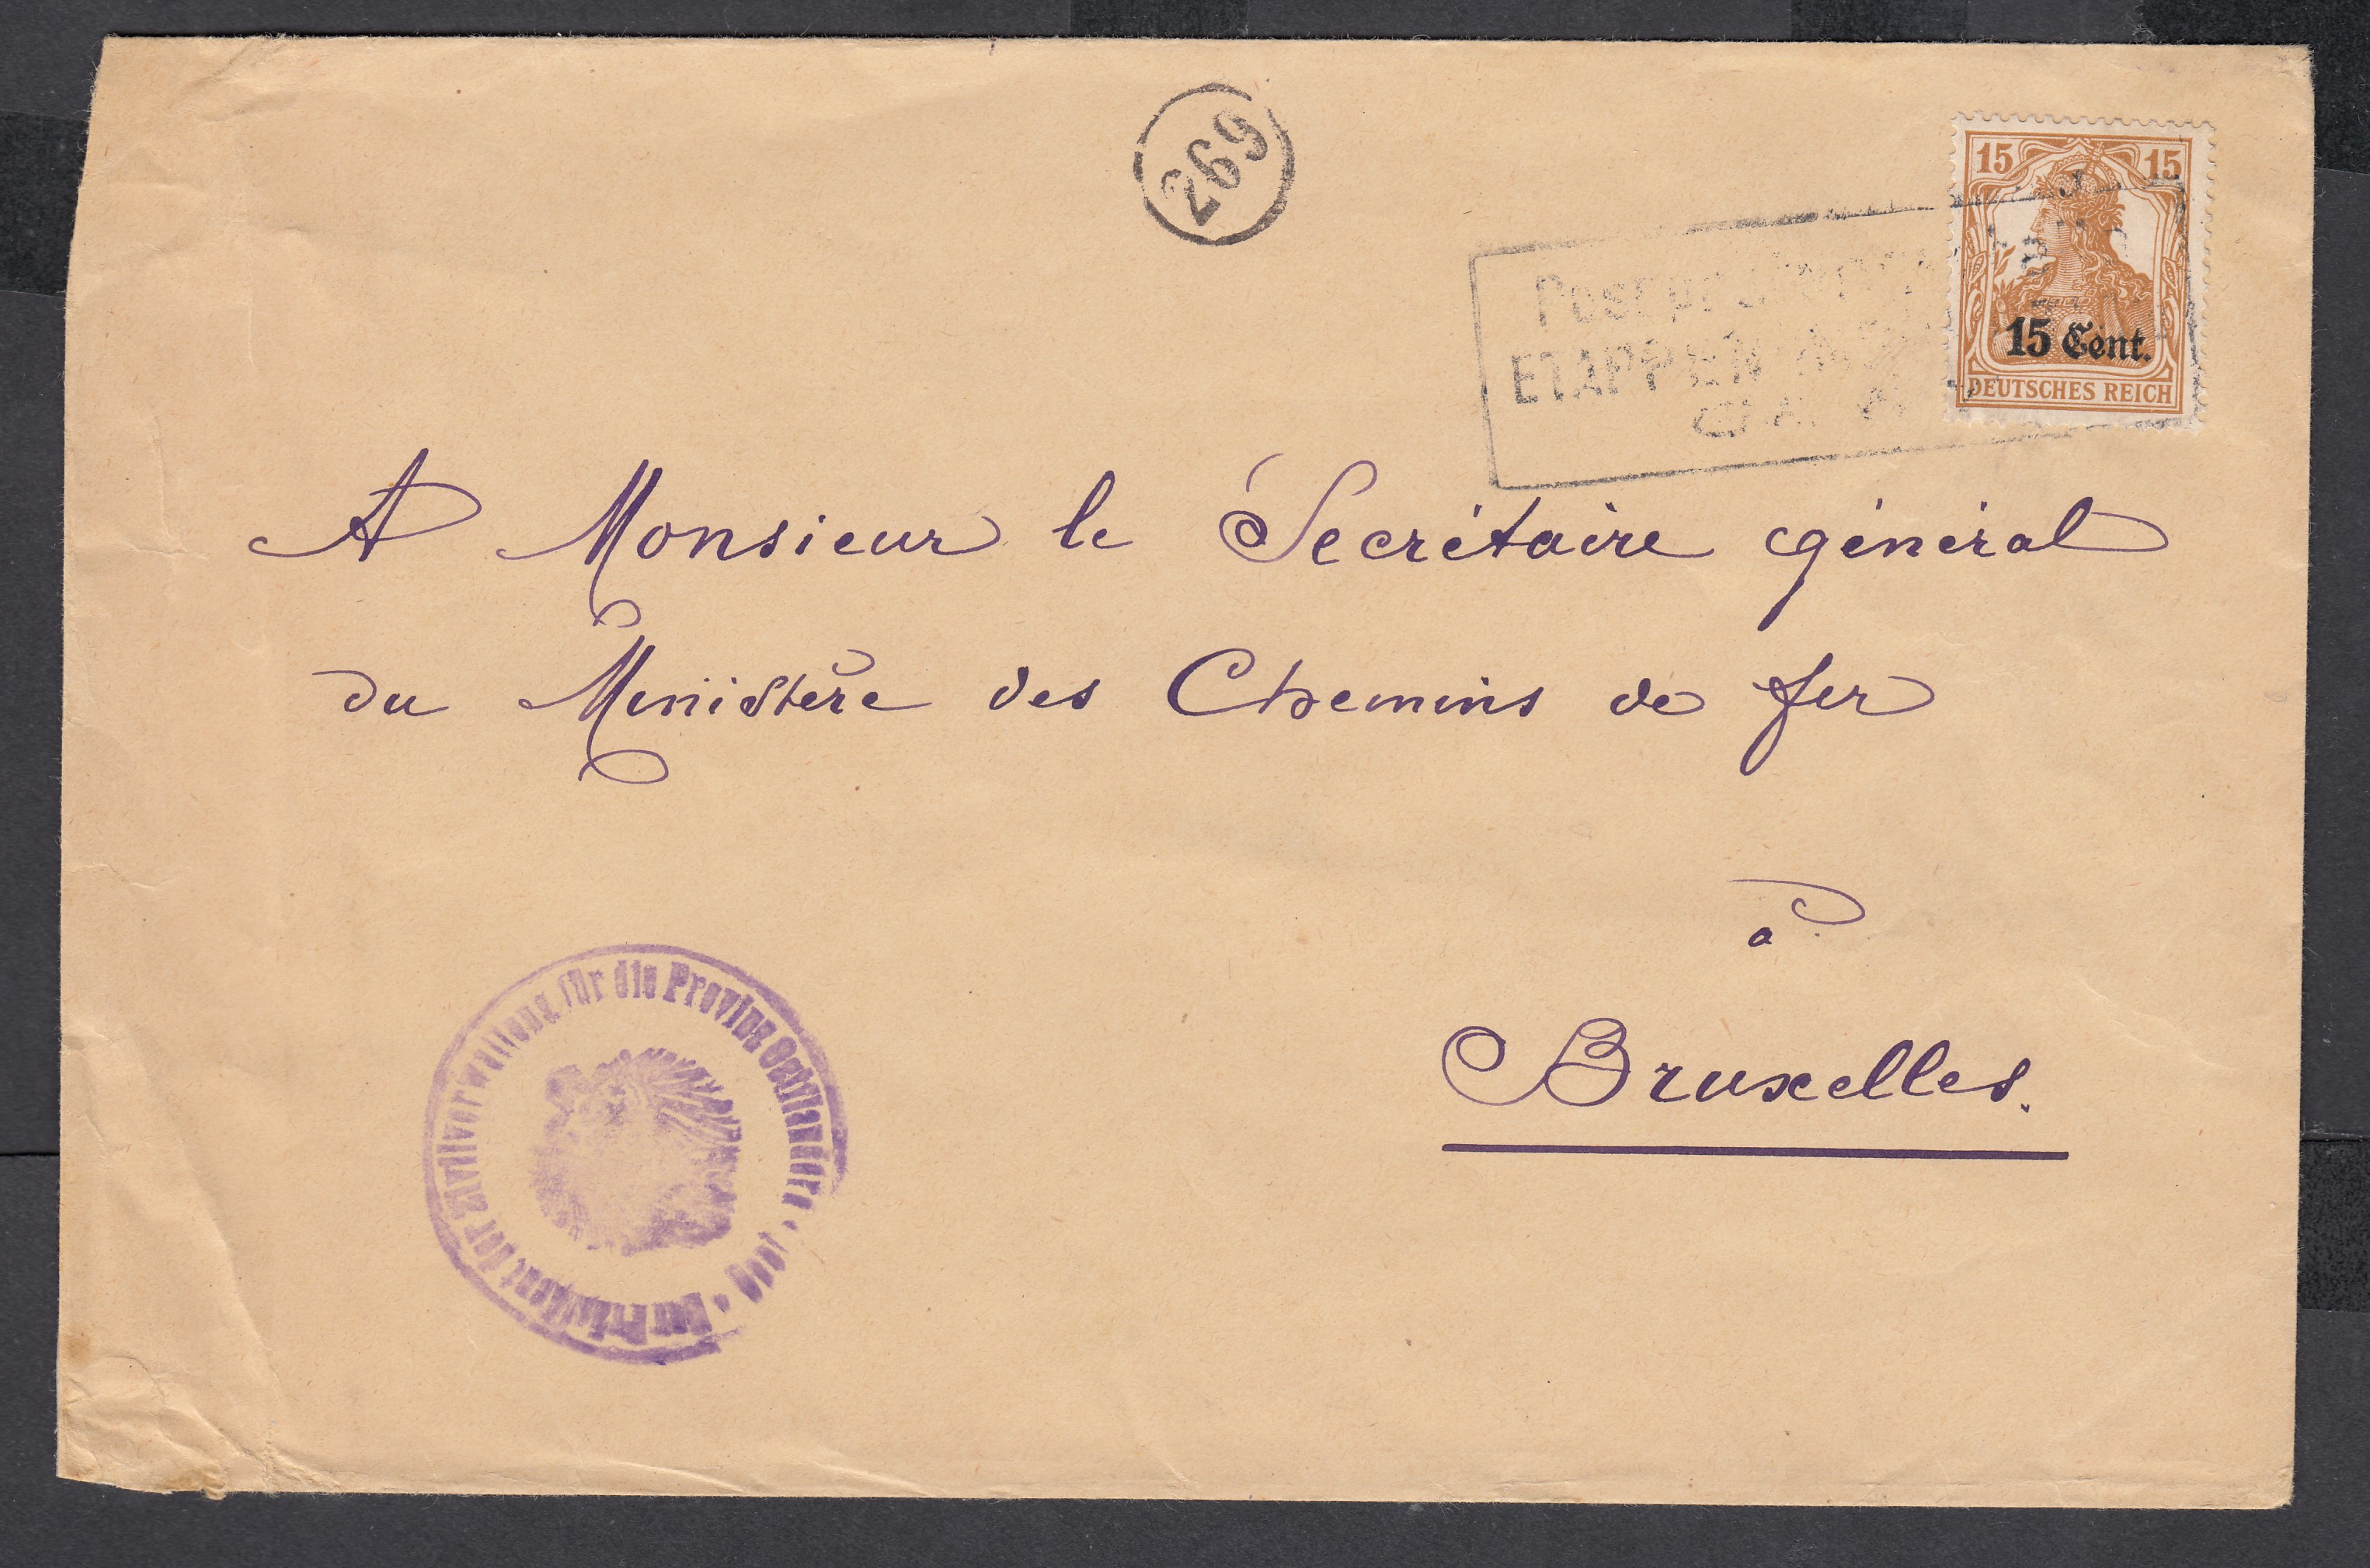 269
15 15
15 Cent.
DEUTSCHES REICH
ETAPPEN
A Monsieur le Secrétaire général
du Ministère des Chemins de fer
à
Bruxelles.
Der Präsident der Zivilverwaltung für die Provinz Ostflandern